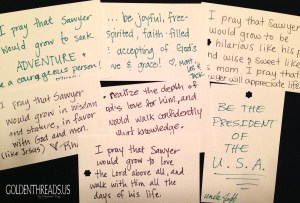 I pray that Sawyer
would grow to seek
ADVENTURE +
be a courageous person!
... be joyful, free-
spirited, faith-filled
+ accepting of God's
love & grace!
I pray that Sawyer
would grow to be
hilarious like his
and wise & sweet like
mom. I pray that
will appreciate life.
I pray that Sawyer
would grow in wisdom
and stature, in favor
with God and men.
(like Jesus)
realize the depth of
God's love for him, and
would walk confidently
that knowledge.
I pray that Sawyer
would grow to love
the Lord above all, and
walk with Him all the
days of his life.
BE THE
PRESIDENT
OF THE
U.S.A.
uncle
GOLDENTHREADS.US